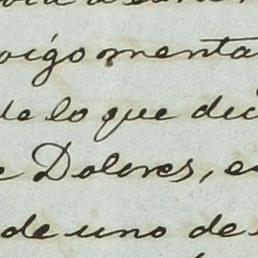 oigo menta
de lo que dic
Dolores, e
de uno de